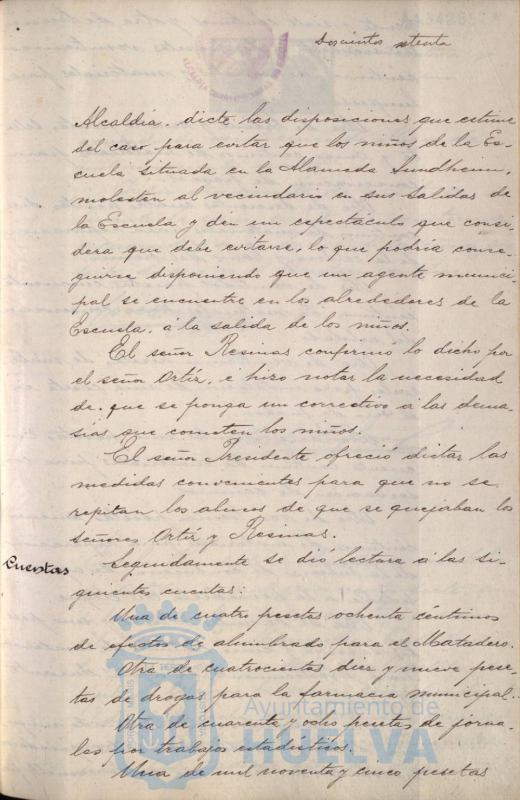 Doscientos setenta
Alcaldía. dicte las disposiciones que estime
del caso para evitar que los niños de la Es-
cuela situada en la Alameda Sundheim,
molesten al vecindario en sus salidas de
la Escuela y den un espectáculo que consi-
dera que debe evitarse, lo que podría conse-
guirse disponiendo que un agente munici-
pal se encuentre en los alrededores de la
Escuela. á la salida de los niños.
El señor Resinas confirmó lo dicho por
el señor Ortíz, é hizo notar la necesidad
de. que se ponga un correctivo á las dema-
sías que cometen los niños.
El señor Presidente ofreció dictar las
medidas convenientes para que no se
repitan los abusos de que se quejaban los
señores Ortíz y Resinas.
Cuentas
Seguidamente se dió lectura á las si-
guientes cuentas:
Una de cuatro pesetas ochenta céntimos
de efectos de alumbrado para el Matadero.
Otra de cuatrocientas diez y nueve pese-
tas de drogas para la farmacia municipal.
Otra de cuarenta y ocho pesetas de jorna-
les por trabajos estadísticos.
Una de mil noventa y cinco pesetas
Ayuntamiento de
HUELVA